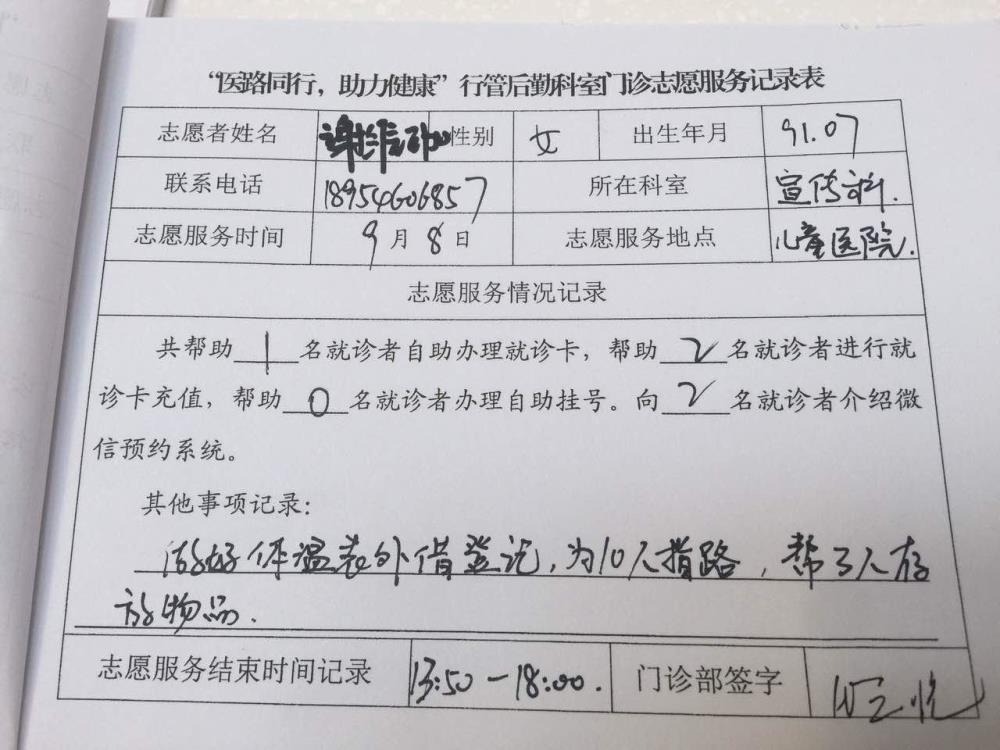 “医路同行，助力健康”行管后勤科室门诊志愿服务记录表
志愿者姓名 性别 女 出生年月 91.07
联系电话 18954606857 所在科室 宣传科.
志愿服务时间 9月8日 志愿服务地点 儿童医院.
志愿服务情况记录
共帮助1名就诊者自助办理就诊卡，帮助2名就诊者进行就
诊卡充值，帮助0名就诊者办理自助挂号。向2名就诊者介绍微
信预约系统。
其他事项记录：
做好体温表外借登记，为10人指路，帮3人存
放物品.
志愿服务结束时间记录 13:50-18:00. 门诊部签字